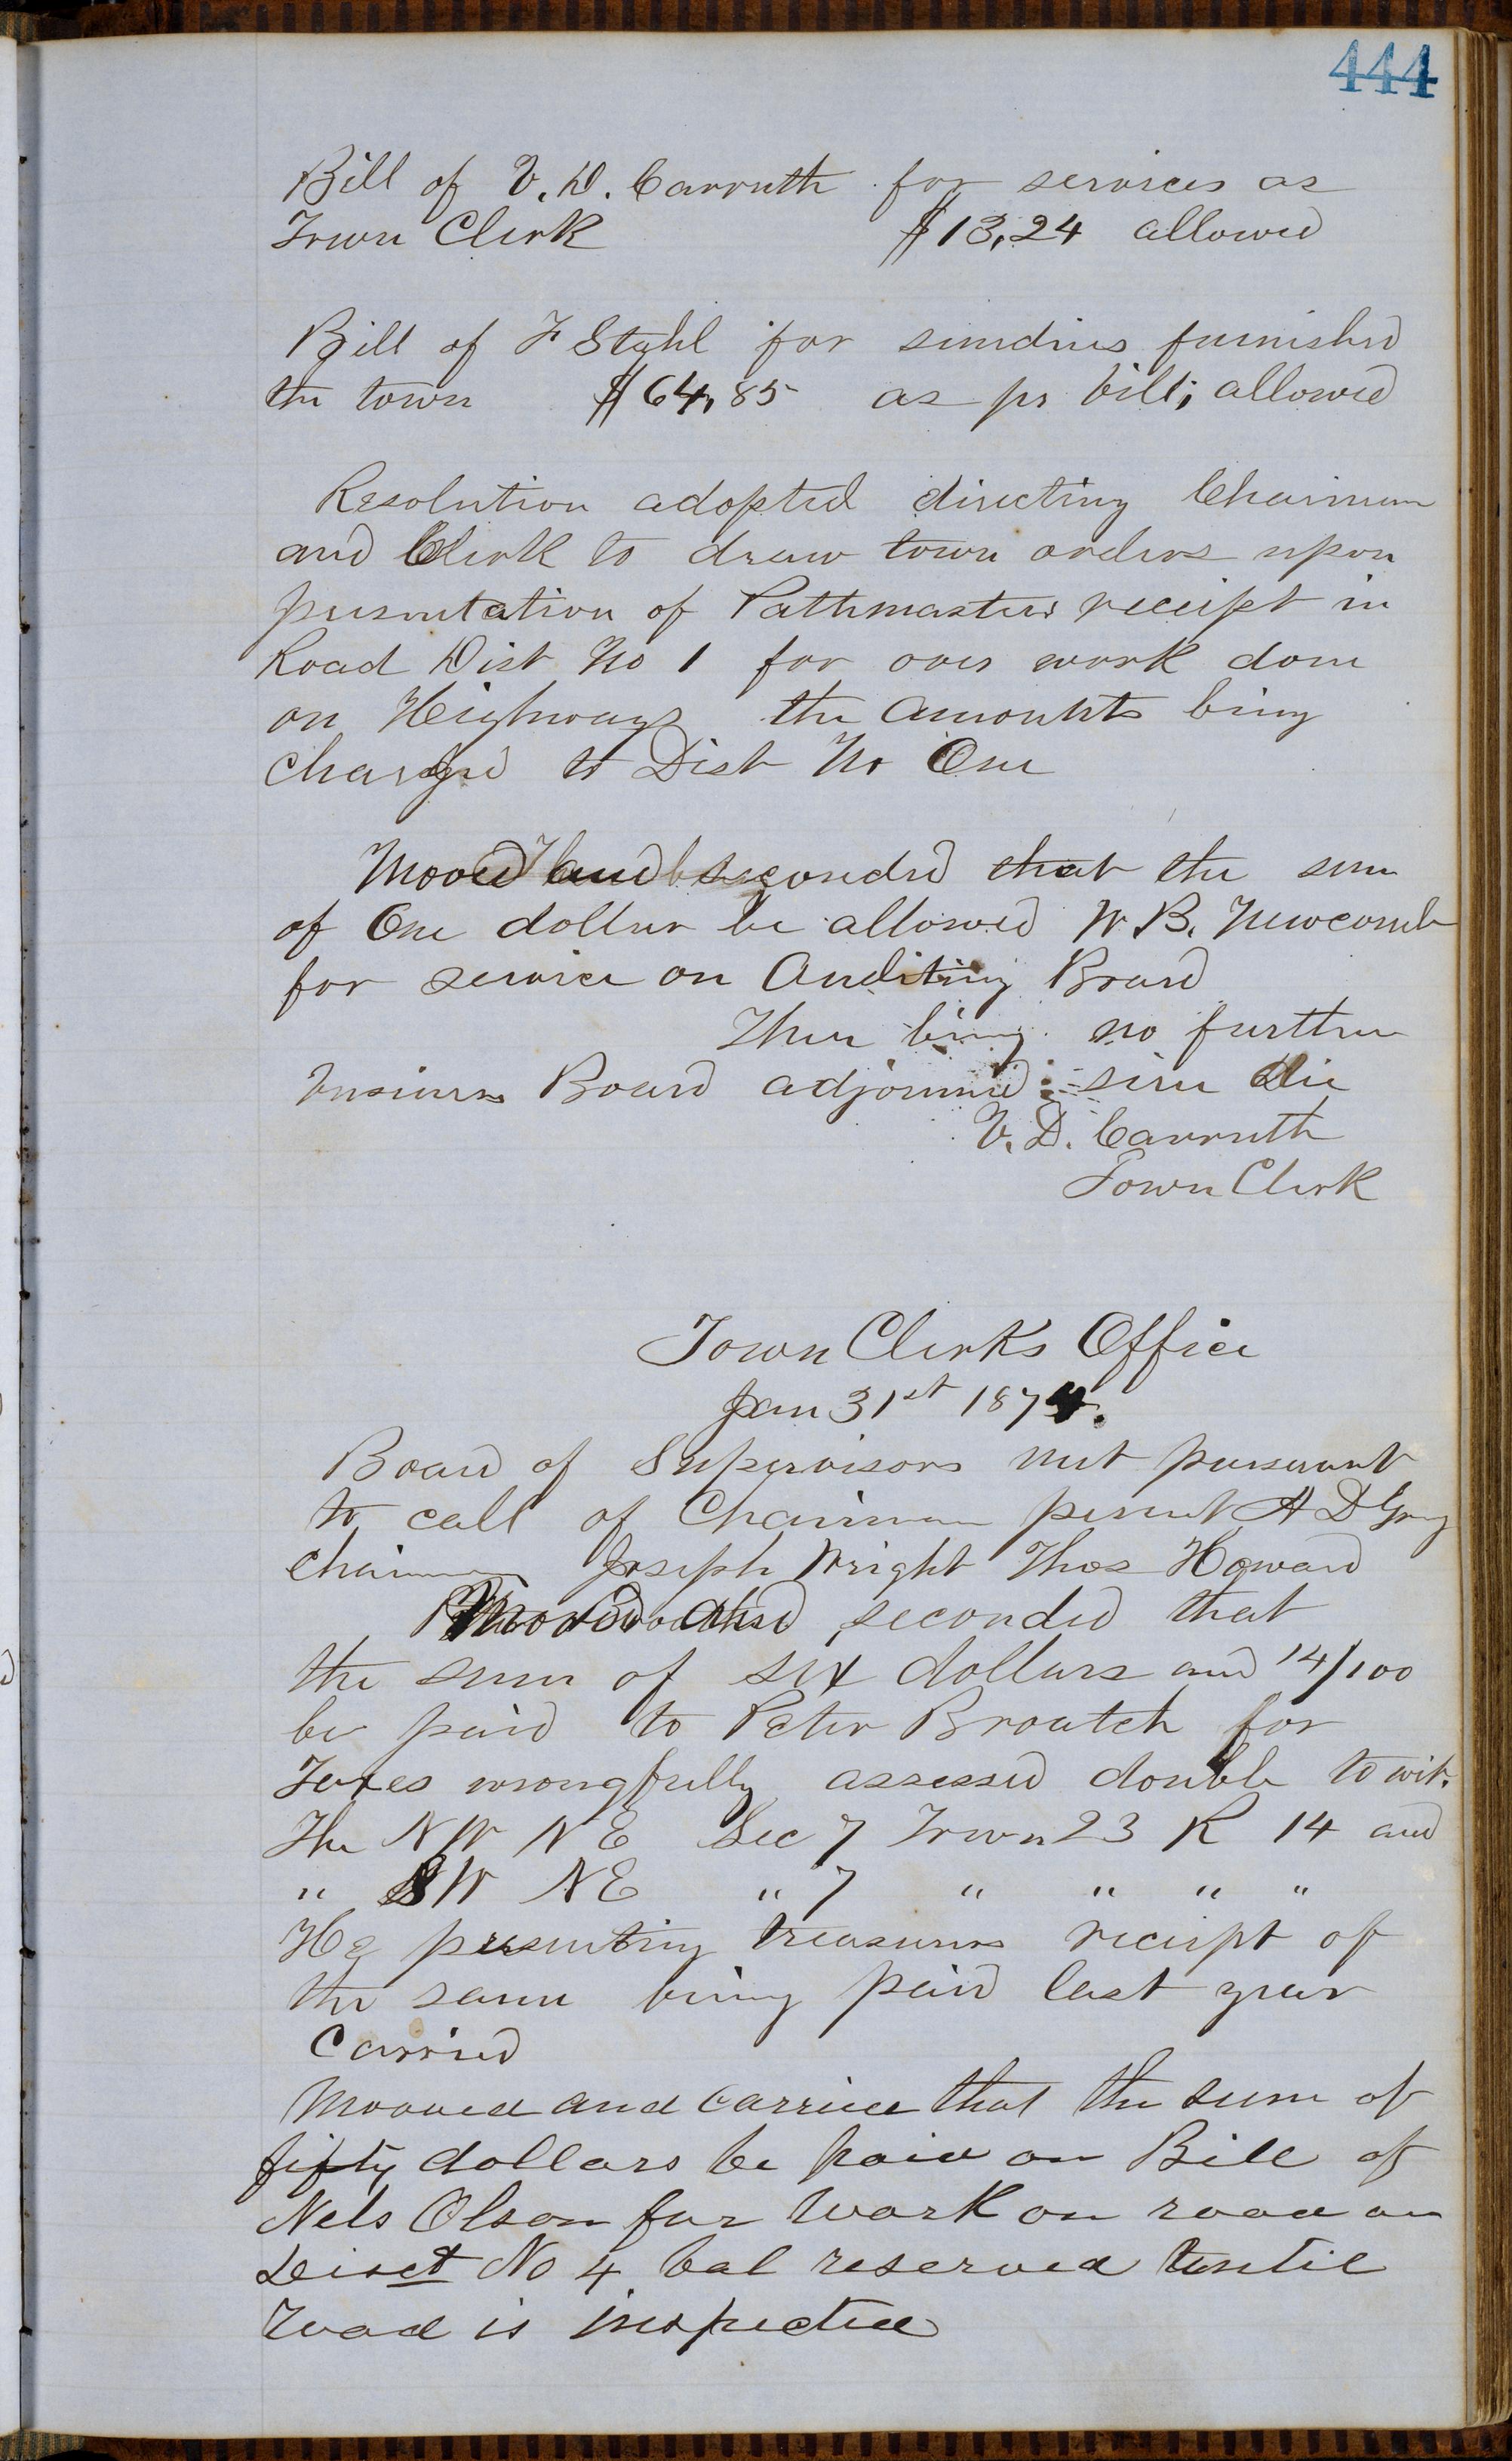 444
Bill of V. D. Carruth for services as
Town Clerk $13,24 allowed
Bill of F Stahl for sundries furnished
the town $64,85 as pr bill; allowed
Resolution adopted directing Chairman
and Clerk to draw town orders upon
presentation of Pathmasters receipt in
Road Dist No 1 for over work done
on Heighways the amounts being
charged to Dist No One
Mooved and seconded that the sum
of One dollar be allowed W. B. Newcomb
for service on Auditing Board
There being no further
business Board adjourned sine Die
V. D. Carruth
Town Clerk
Town Clerks Office
Jan 31st 1874.
Board of Supervisors met pursuant
to call of Chairman present A D Gray
Chairman Joseph Wright Thos Howard
Mooved and seconded that
the sum of six dollars and 14/100
be paid to Peter Broutch for
Taxes wrongfully assessed double to wit.
The NW NE Sec 7 Town 23 R 14 and
" SW NE " 7 " " " "
He presenting treasurers receipt of
the same being paid last year
Carried
Mooved and carried that the sum of
fifty dollars be paid on Bill of
Nels Olson for work on road on
Disct No 4 bal reserved until
road is inspected